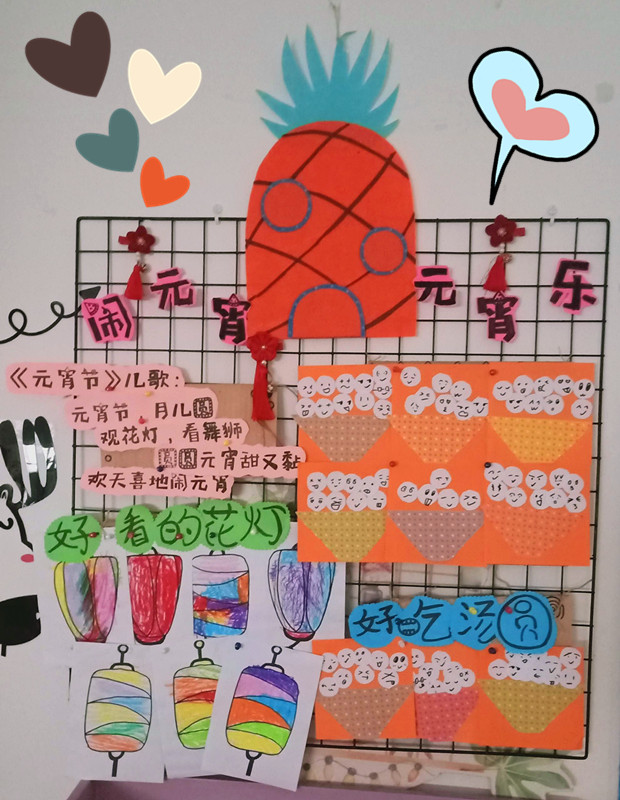 闹元宵
元宵乐
《元宵节》儿歌:
元宵节,月儿圆
观花灯,看舞狮
圆圆元宵甜又黏
欢天喜地闹元宵
好看的花灯
好吃汤圆